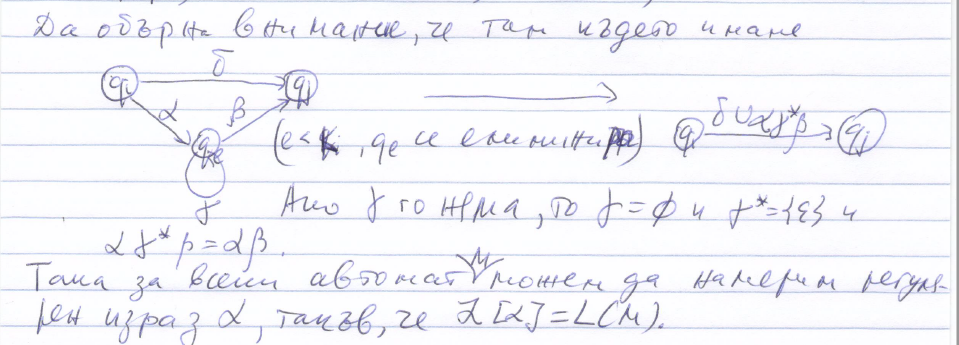 Да обърна внимание, че там където имаме
qi δ qj
α β
(l<k, ql се елиминира) qi δ∪αγ*β qj
ql
γ
Ако γ го няма, то γ=∅ и γ*={ε} и
αγ*β=αβ.
Така за всеки автомат M можем да намерим регуля-
рен израз α, такъв, че ℒ[α]=L(M).